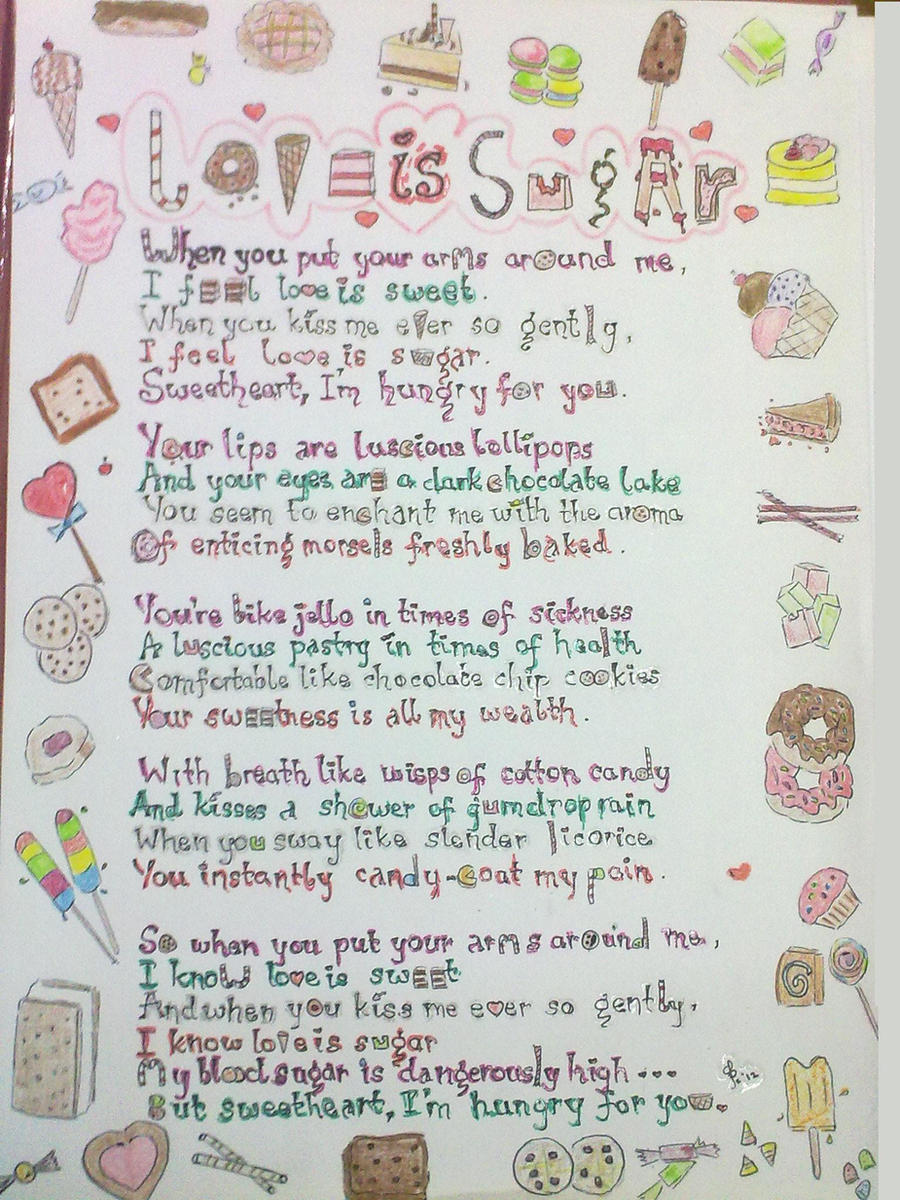 Love is Sugar
When you put your arms around me,
I feel love is sweet.
When you kiss me ever so gently,
I feel love is sugar.
Sweetheart, I'm hungry for you.
Your lips are luscious lollipops
And your eyes are a dark chocolate lake
You seem to enchant me with the aroma
Of enticing morsels freshly baked.
You're like jello in times of sickness
A luscious pastry in times of health
Comfortable like chocolate chip cookies
Your sweetness is all my wealth.
With breath like wisps of cotton candy
And kisses a shower of gumdrop rain
When you sway like slender licorice
You instantly candy-coat my pain.
So when you put your arms around me,
I know love is sweet
And when you kiss me ever so gently,
I know love is sugar
My blood sugar is dangerously high...
But sweetheart, I'm hungry for you.